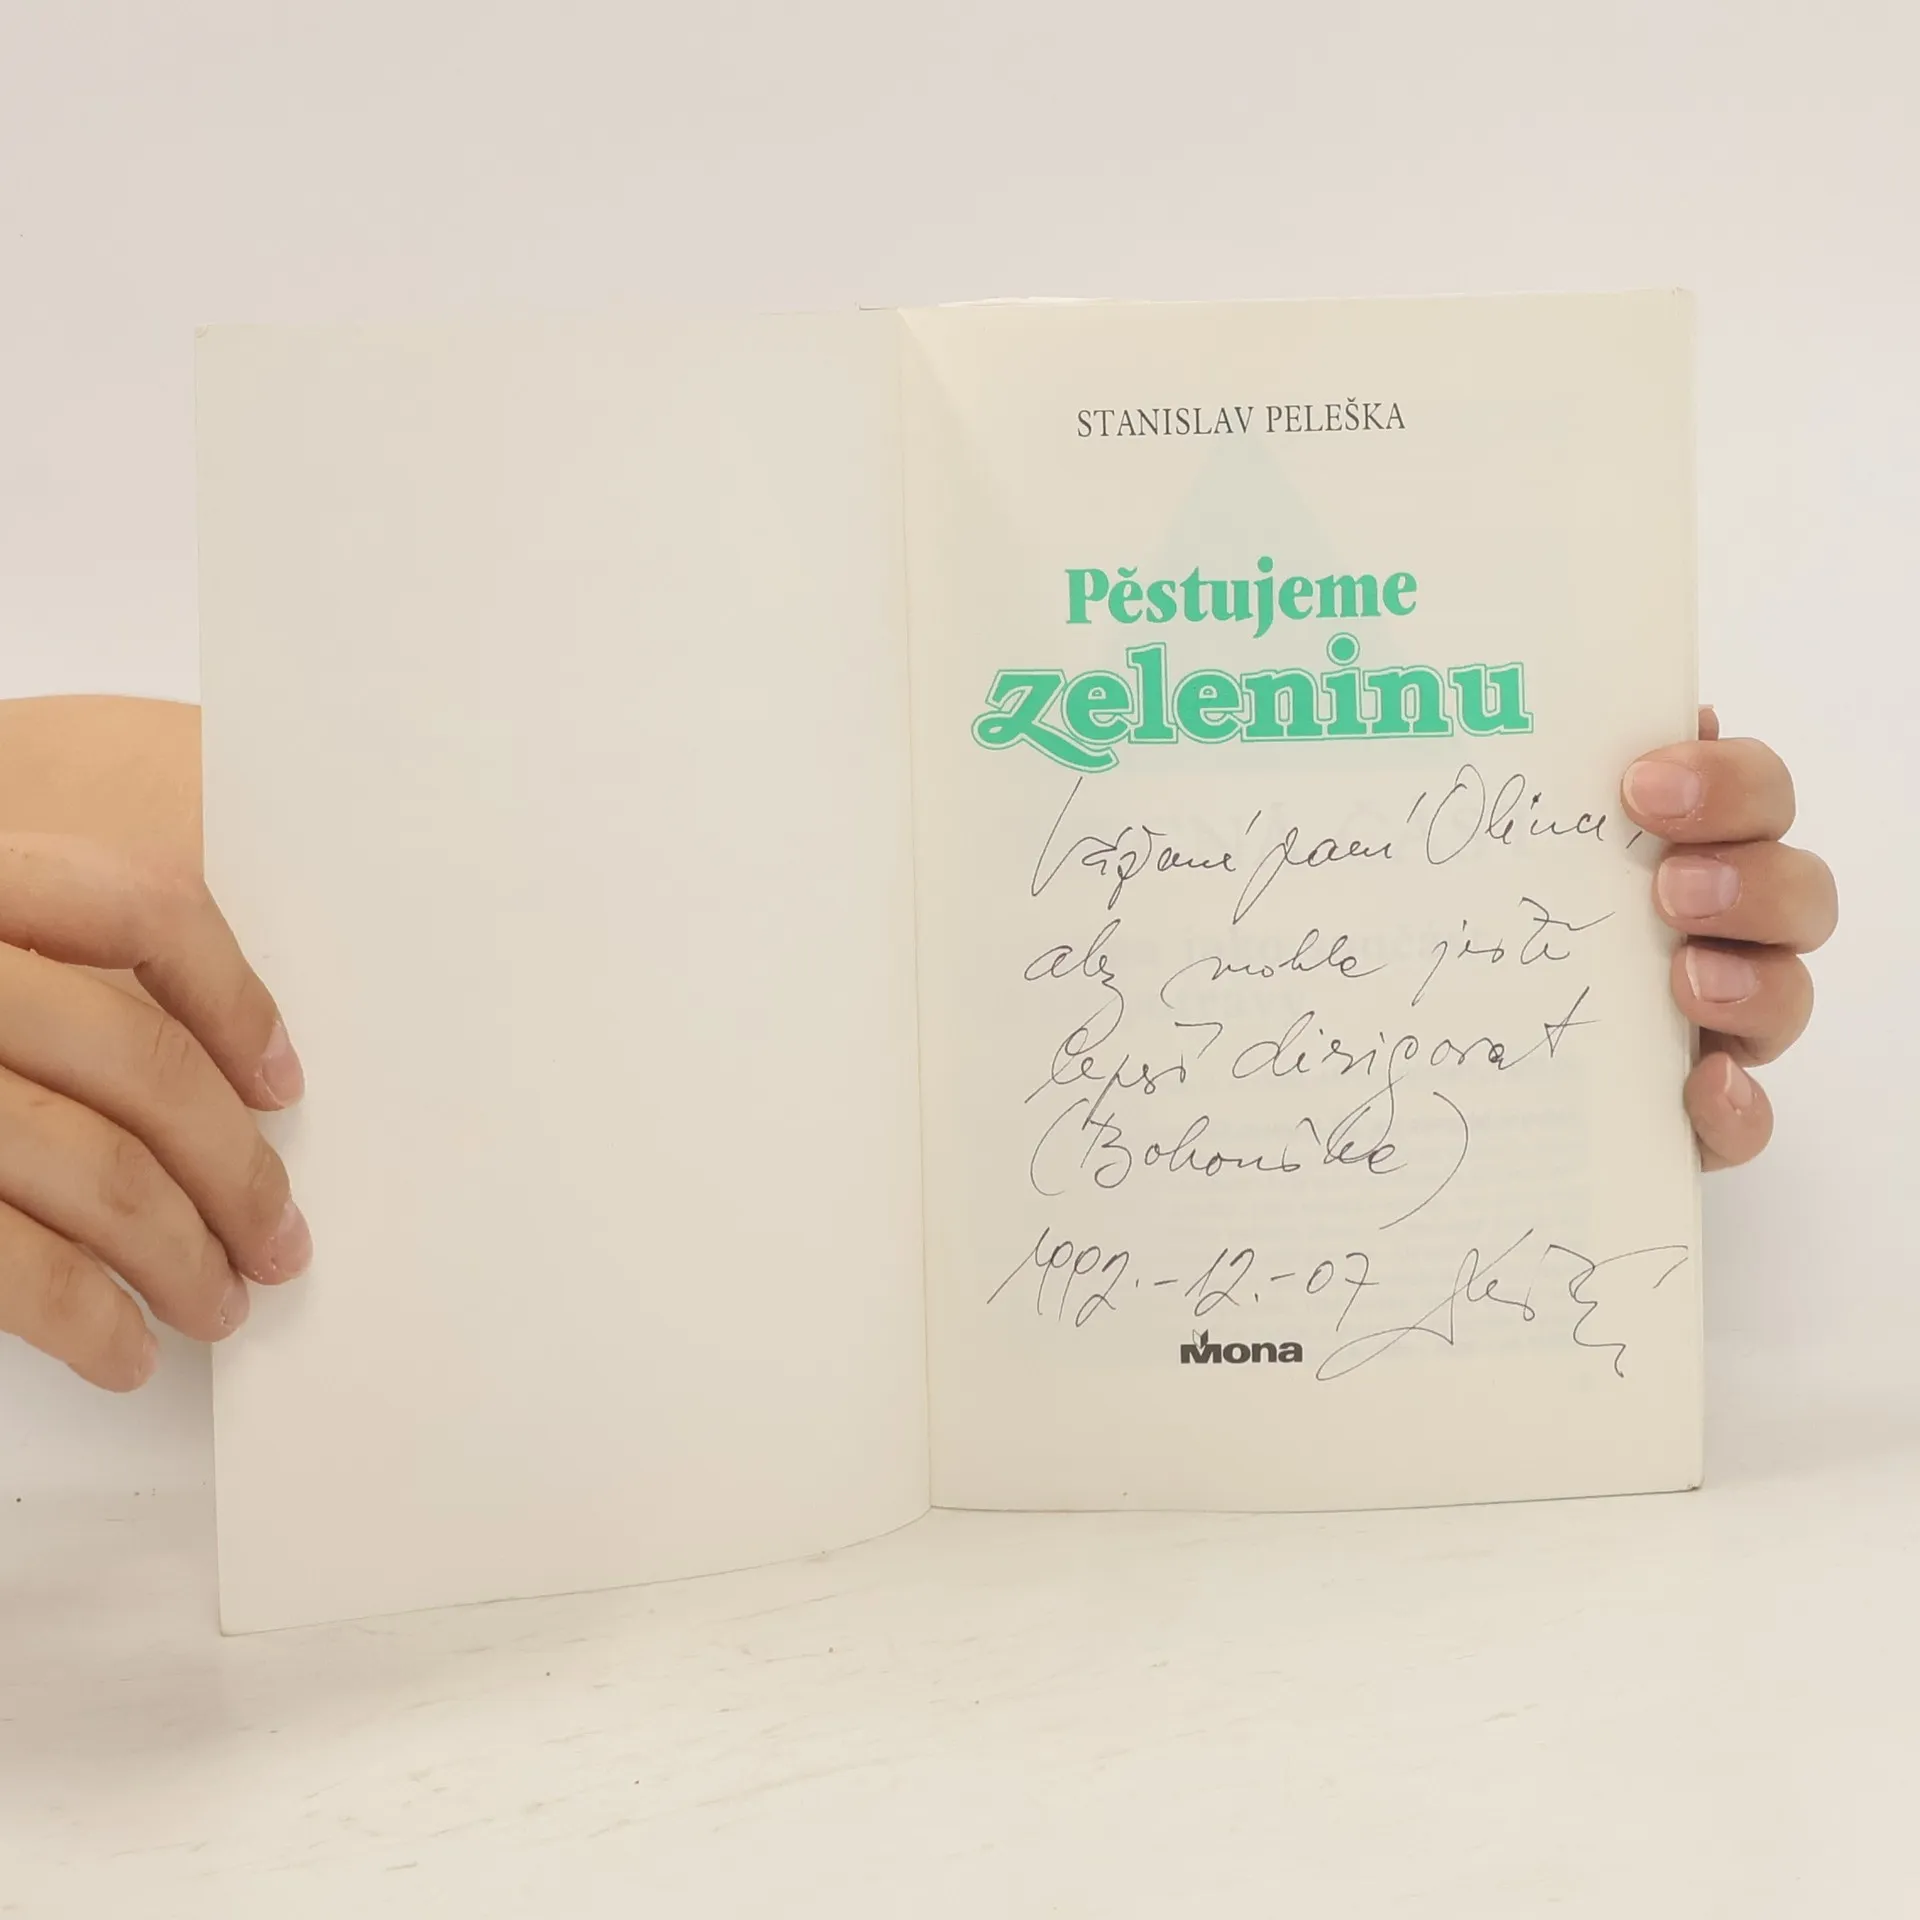 STANISLAV PELEŠKA
Pěstujeme
zeleninu
Vážené paní Olince,
aby mohla ještě
lepší dirigovat
(Bohouška)
1992.-12.-07
Mona